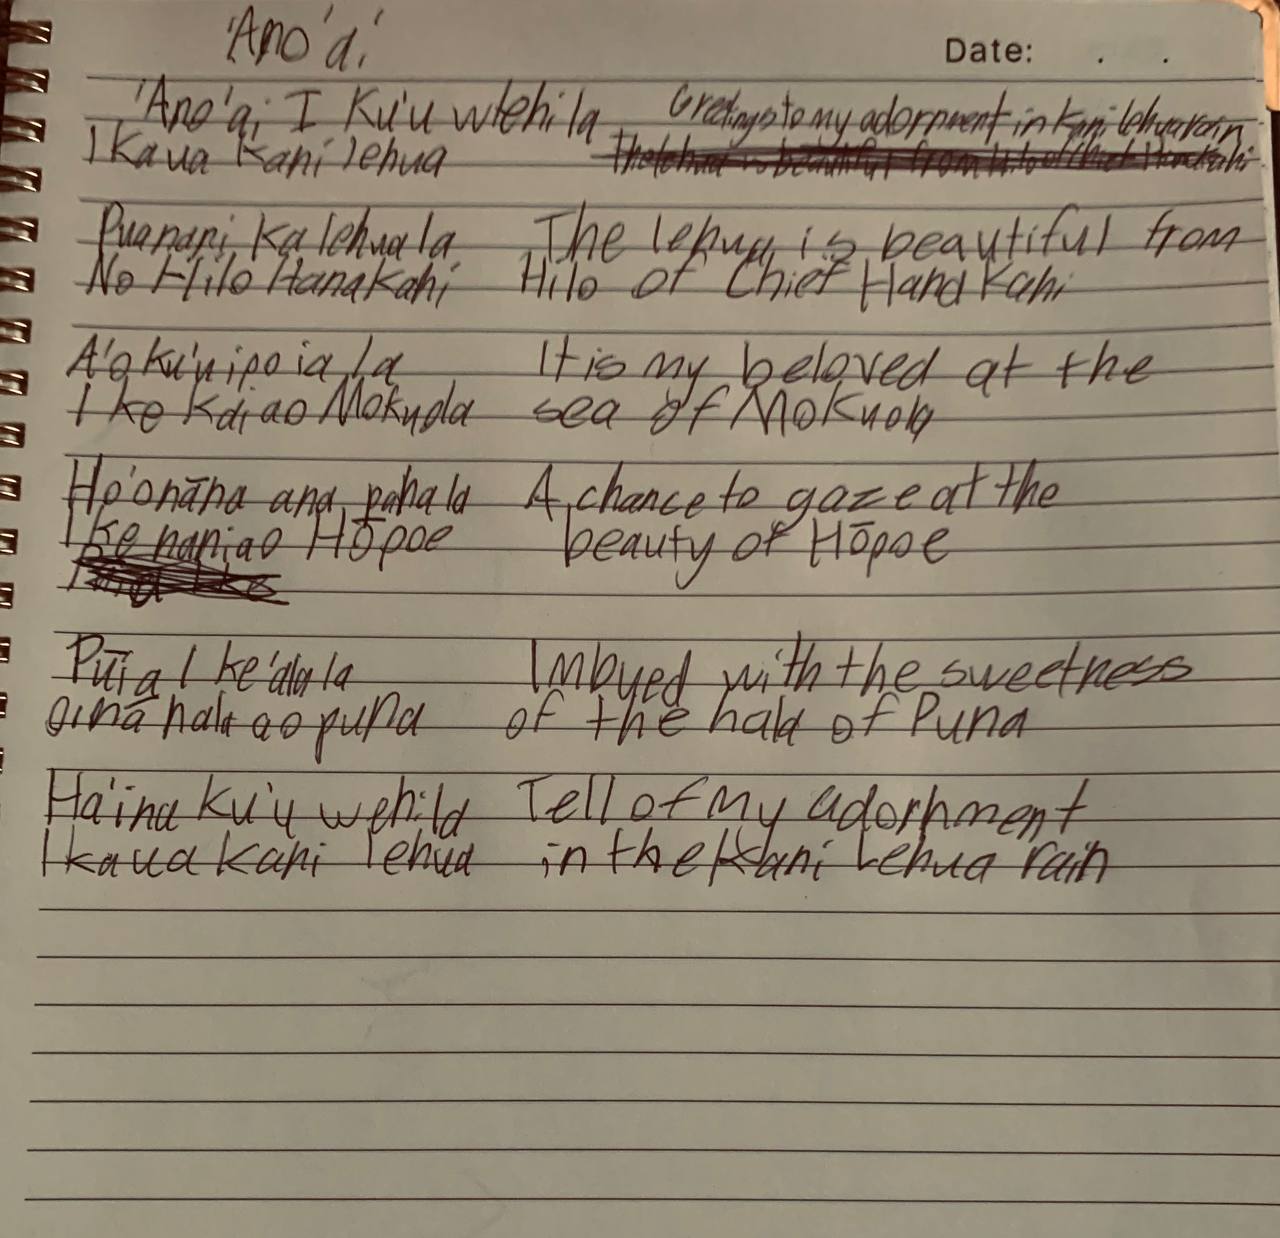 'Ano'ai
Date: . .
'Ano'ai I Ku'u wehi la Greetings to my adornment in Kani lehua rain
I Ka ua Kani lehua
Puanani Ka lehua la The lehua is beautiful from
No Hilo Hanakahi Hilo of Chief Hana Kahi
A'o ku'u ipo ia la It is my beloved at the
I ke Kai ao Mokuola sea of Mokuola
Ho'onāna ana paha la A chance to gaze at the
I ke nani ao Hōpoe beauty of Hōpoe
Pūīa I ke 'ala la Imbued with the sweetness
o i nā hala ao puna of the hala of Puna
Ha'ina Ku'u wehi la Tell of my adornment
I ka ua Kani lehua in the Kani Lehua rain